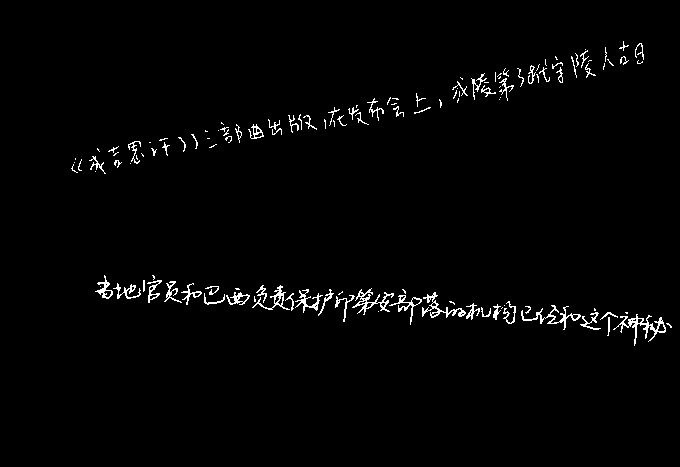 《成吉思汗》三部曲出版,在发布会上,成陵第38代守陵人古日
当地官员和巴西负责保护印第安部落的机构已经和这个神秘